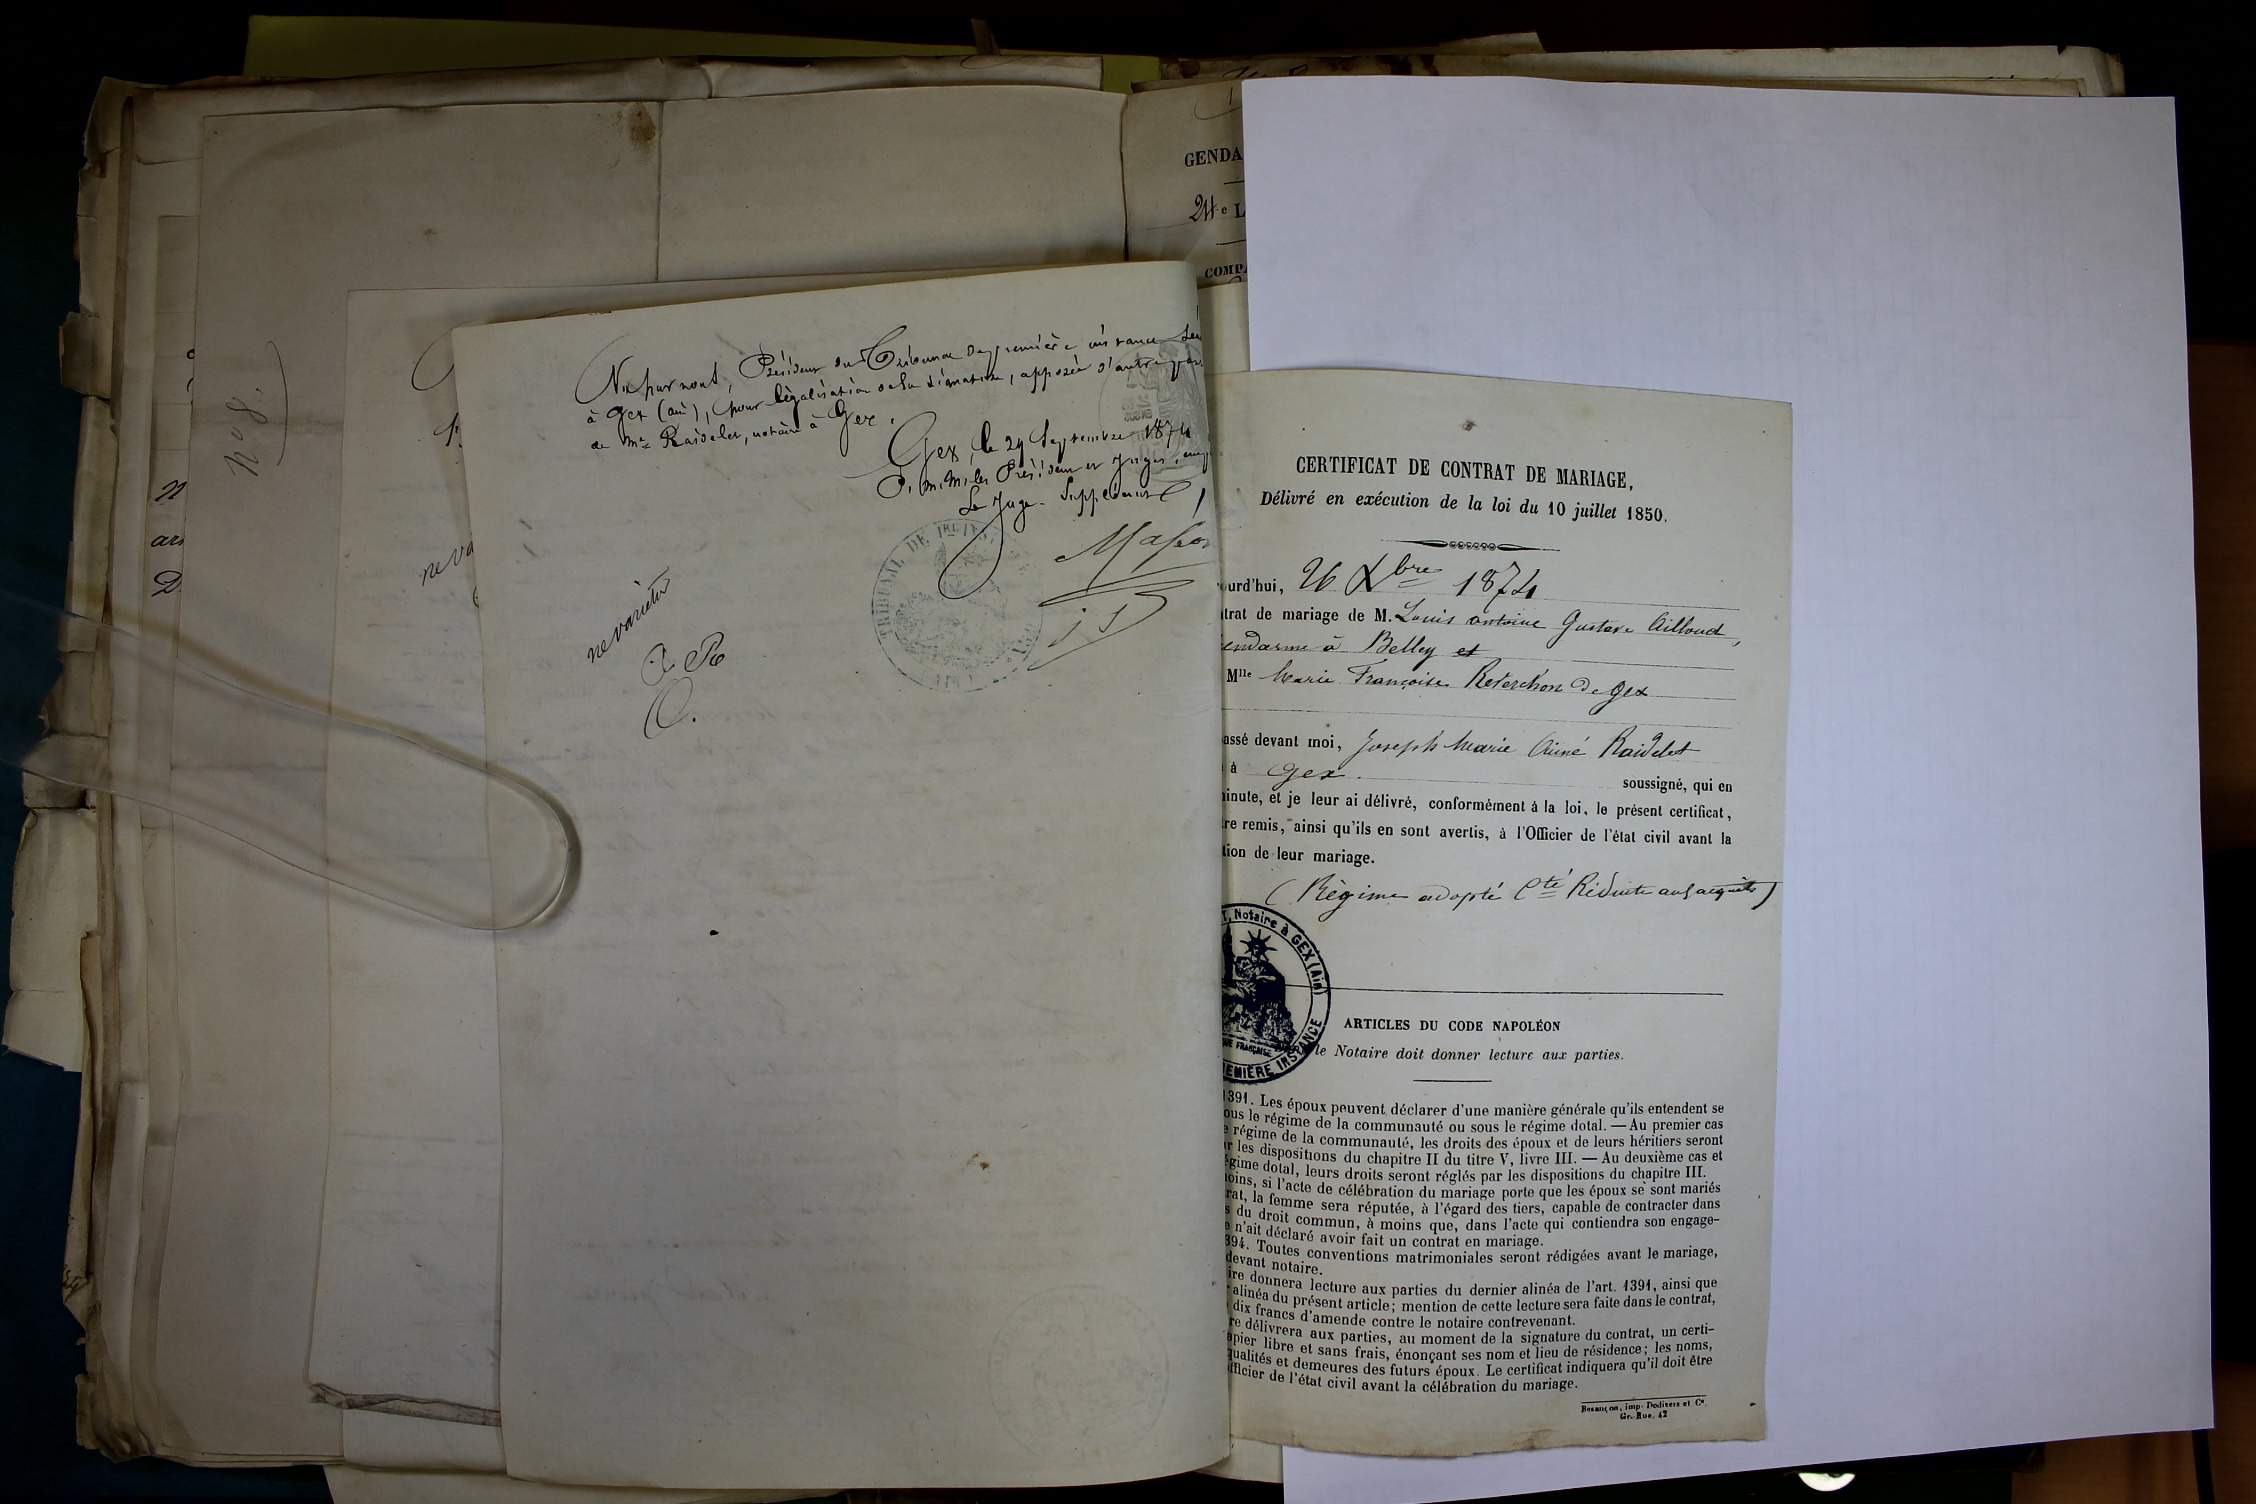 no 8.
Vu par nous, Président du Tribunal de première instance
à Gex (ain), pour légalisation de la signature, apposée d'autre part
de Me Raidelet, notaire à Gex.
Gex, le 29 Septembre 1874
P. m.m. les Président et Juges,
Le Juge Suppléant
ne varietur
TRIBUNAL DE 1RE
ne va
GENDA
24e L
COMPA
CERTIFICAT DE CONTRAT DE MARIAGE,
Délivré en exécution de la loi du 10 juillet 1850.
ourd'hui, 26 Xbre 1874
trat de mariage de M. Louis antoine Gustave Ailloud,
endarme à Belley et
Mlle Marie Françoise Reverchon de Gex
assé devant moi, Joseph Marie Aimé Raidelet
à Gex. soussigné, qui en
inute, et je leur ai délivré, conformément à la loi, le présent certificat,
re remis, ainsi qu'ils en sont avertis, à l'Officier de l'état civil avant la
tion de leur mariage.
(Régime adopté Cté Réduite aux acquêts)
T, Notaire à GEX (Ain)
UE FRANÇAISE
EMIÈRE INSTANCE
ARTICLES DU CODE NAPOLÉON
le Notaire doit donner lecture aux parties.
1391. Les époux peuvent déclarer d'une manière générale qu'ils entendent se
ous le régime de la communauté ou sous le régime dotal. — Au premier cas
e régime de la communauté, les droits des époux et de leurs héritiers seront
r les dispositions du chapitre II du titre V, livre III. — Au deuxième cas et
égime dotal, leurs droits seront réglés par les dispositions du chapitre III.
oins, si l'acte de célébration du mariage porte que les époux se sont mariés
rat, la femme sera réputée, à l'égard des tiers, capable de contracter dans
s du droit commun, à moins que, dans l'acte qui contiendra son engage-
e n'ait déclaré avoir fait un contrat en mariage.
394. Toutes conventions matrimoniales seront rédigées avant le mariage,
devant notaire.
ire donnera lecture aux parties du dernier alinéa de l'art. 1391, ainsi que
alinéa du présent article; mention de cette lecture sera faite dans le contrat,
dix francs d'amende contre le notaire contrevenant.
re délivrera aux parties, au moment de la signature du contrat, un certi-
apier libre et sans frais, énonçant ses nom et lieu de résidence; les noms,
qualités et demeures des futurs époux. Le certificat indiquera qu'il doit être
fficier de l'état civil avant la célébration du mariage.
Besançon, imp. Dodivers et Ce.
Gr.-Rue, 42